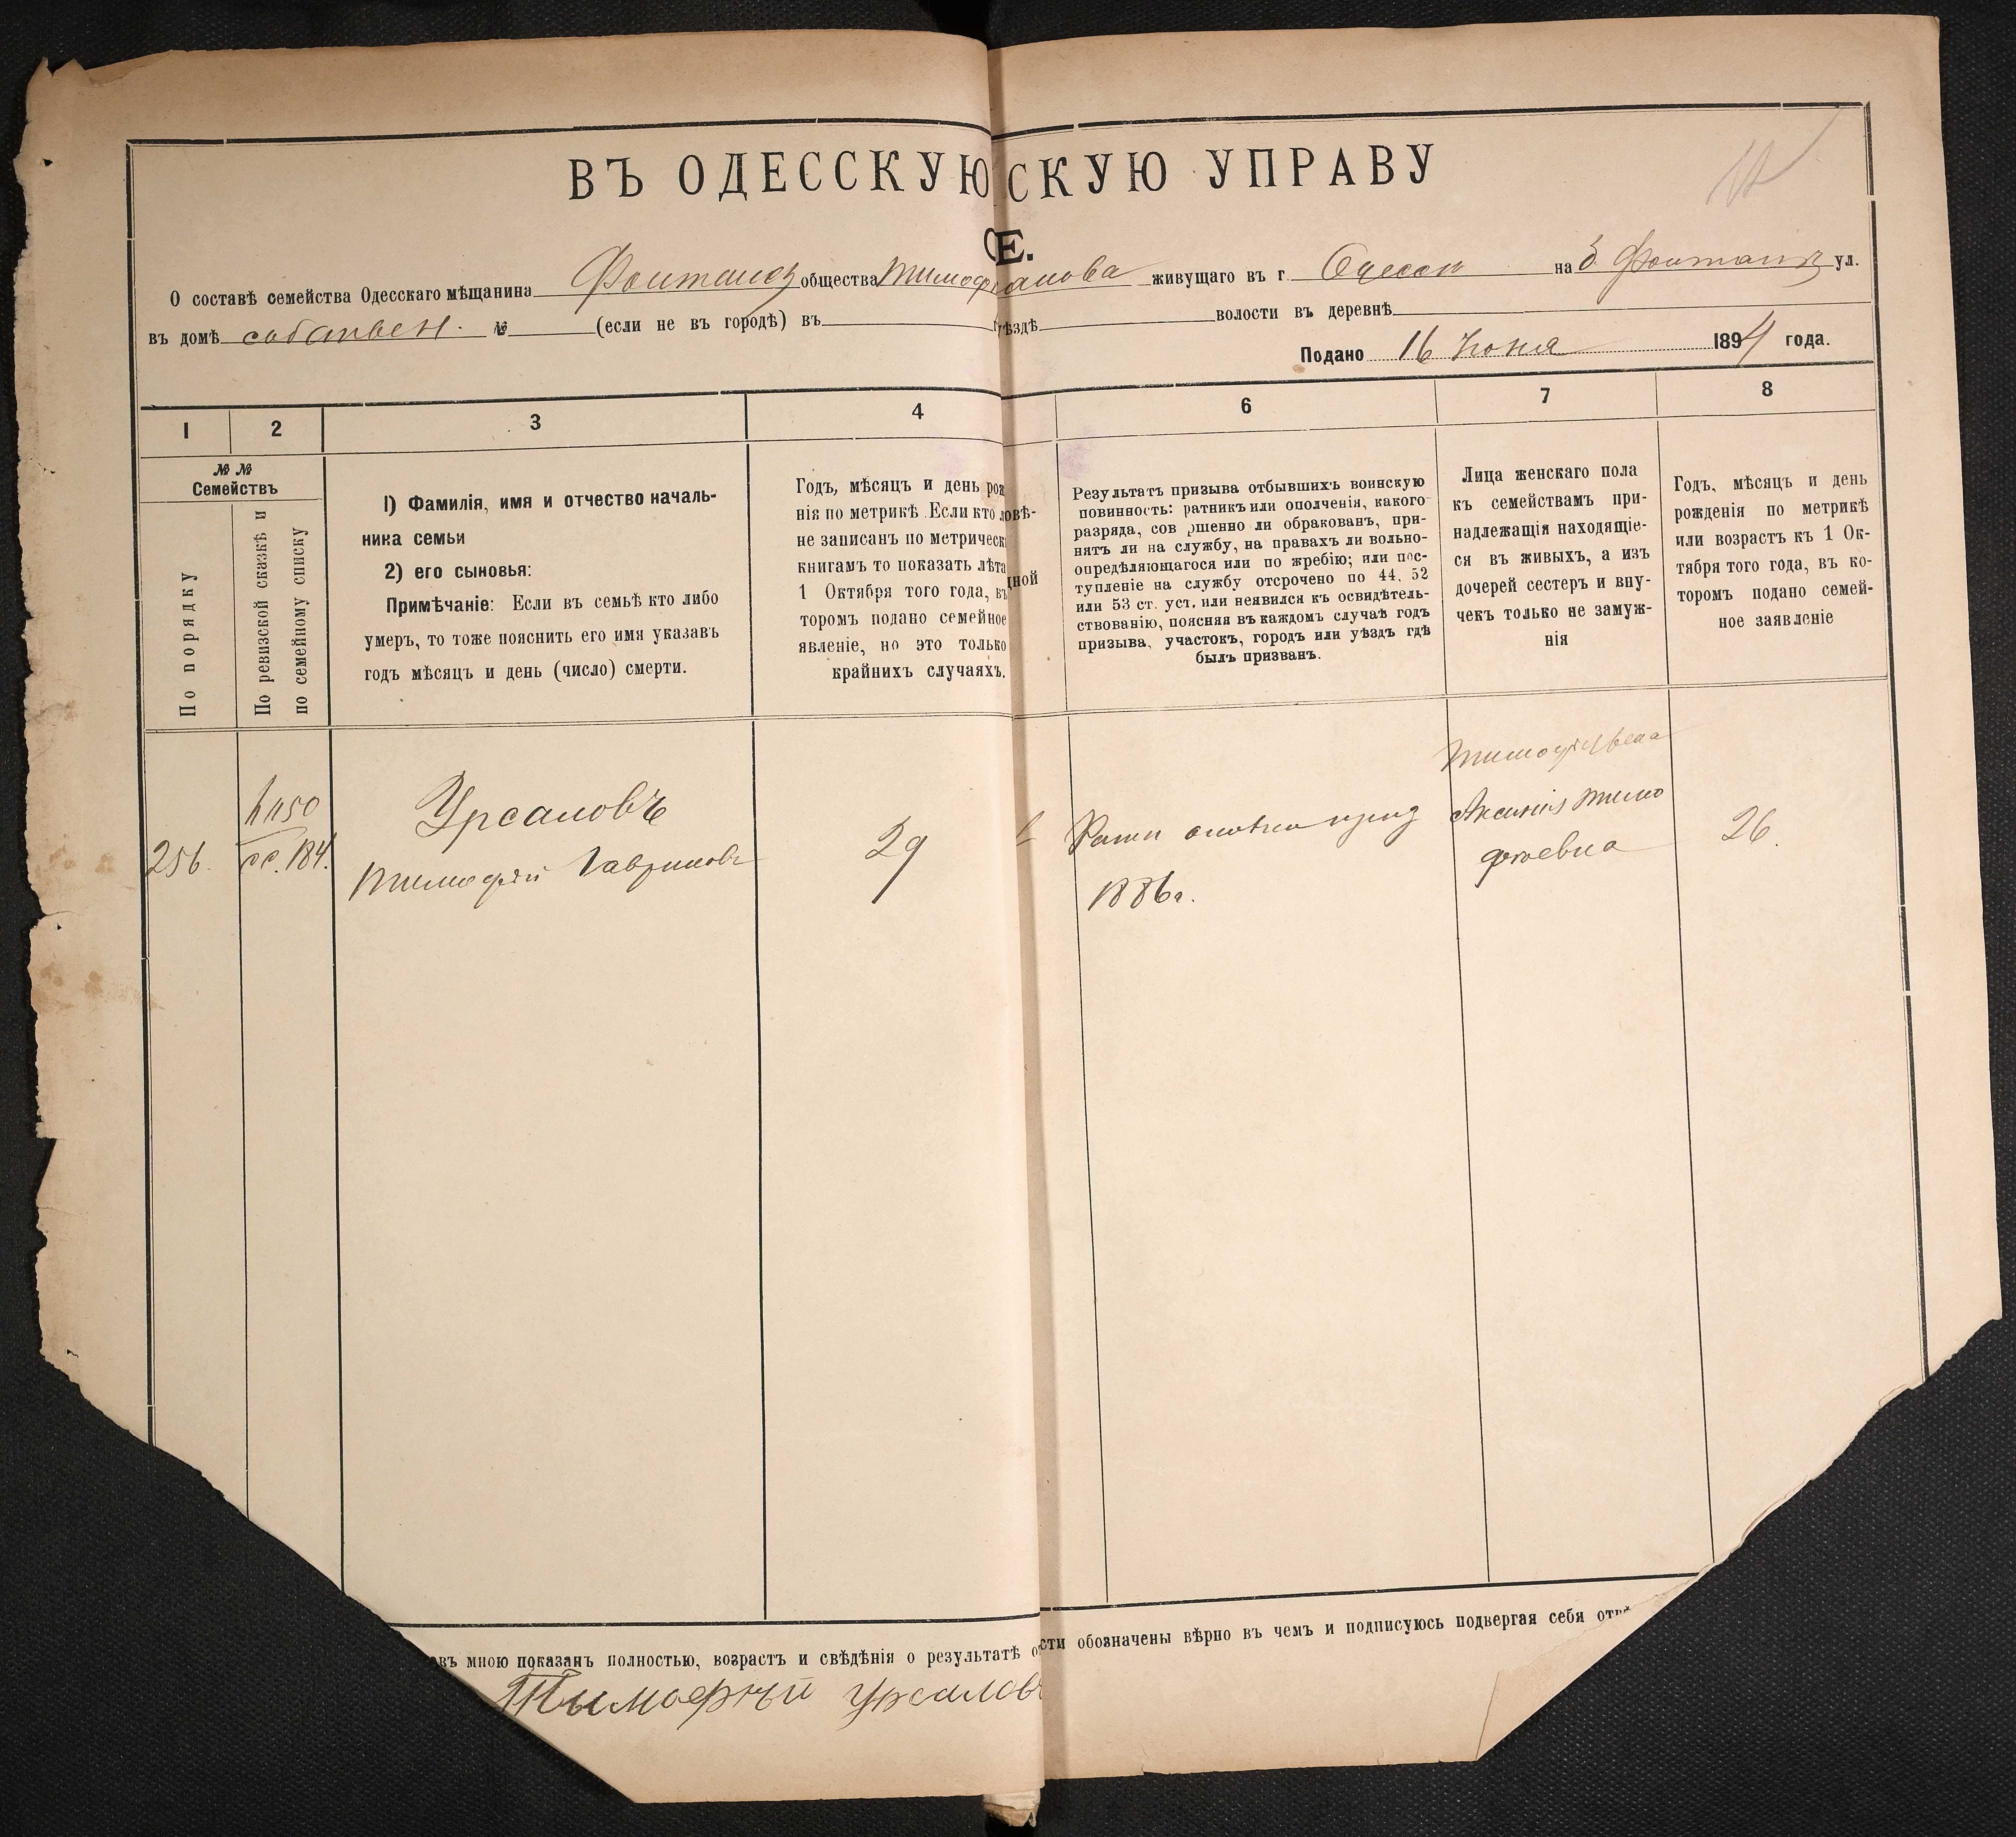 ВЪ ОДЕССКУЮ СКУЮ УПРАВУ
Е.
О составѣ семейства Одесскаго мѣщанина Фонтанск общества Тимоф анова живущаго въ г. Одессѣ на Б Фонтанѣ ул.
въ домѣ собствен. № (если не въ городѣ) въ уѣздѣ волости въ деревнѣ
Подано 16 Июня 1894 года.
1 2 3 4 6 7 8
№ №
Семействъ
По порядку
По ревизской сказкѣ и
по семейному списку
1) Фамилія, имя и отчество началь-
ника семьи
2) его сыновья:
Примѣчаніе: Если въ семьѣ кто либо
умеръ, то тоже пояснить его имя указавъ
годъ мѣсяцъ и день (число) смерти.
Годъ, мѣсяцъ и день рож
нія по метрикѣ Если кто
не записанъ по метрическ
книгамъ то показать лѣта
1 Октября того года, въ
торомъ подано семейное
явленіе, но это только
крайнихъ случаяхъ.
овѣ-
дной
Результатъ призыва отбывшихъ воинскую
повинность: ратникъ или ополченія, какого
разряда, сов ршенно ли обракованъ, при-
нятъ ли на службу, на правахъ ли вольно-
опредѣляющагося или по жребію; или пос-
тупленіе на службу отсрочено по 44, 52
или 53 ст. уст. или неявился къ освидѣтель-
ствованію, поясняя въ каждомъ случаѣ годъ
призыва, участокъ, городъ или уѣздъ гдѣ
былъ призванъ.
Лица женскаго пола
къ семействамъ при-
надлежащія находящіе-
ся въ живыхъ, а изъ
дочерей сестеръ и вну-
чекъ только не замуж-
нія
Годъ, мѣсяцъ и день
рожденія по метрикѣ
или возрастъ къ 1 Ок-
тября того года, въ ко-
торомъ подано семей-
ное заявленіе
256.
1150
сс. 184.
Урсаловъ
Тимофѣй Гавриловъ
29
Ратн приз
1886 г.
Аксинія Тимо
фѣевна
26.
овъ мною показанъ полностью, возрастъ и свѣдѣнія о результатѣ о сти обозначены вѣрно въ чемъ и подписуюсь подвергая себя отвѣ
Тымофѣй Урсаловъ